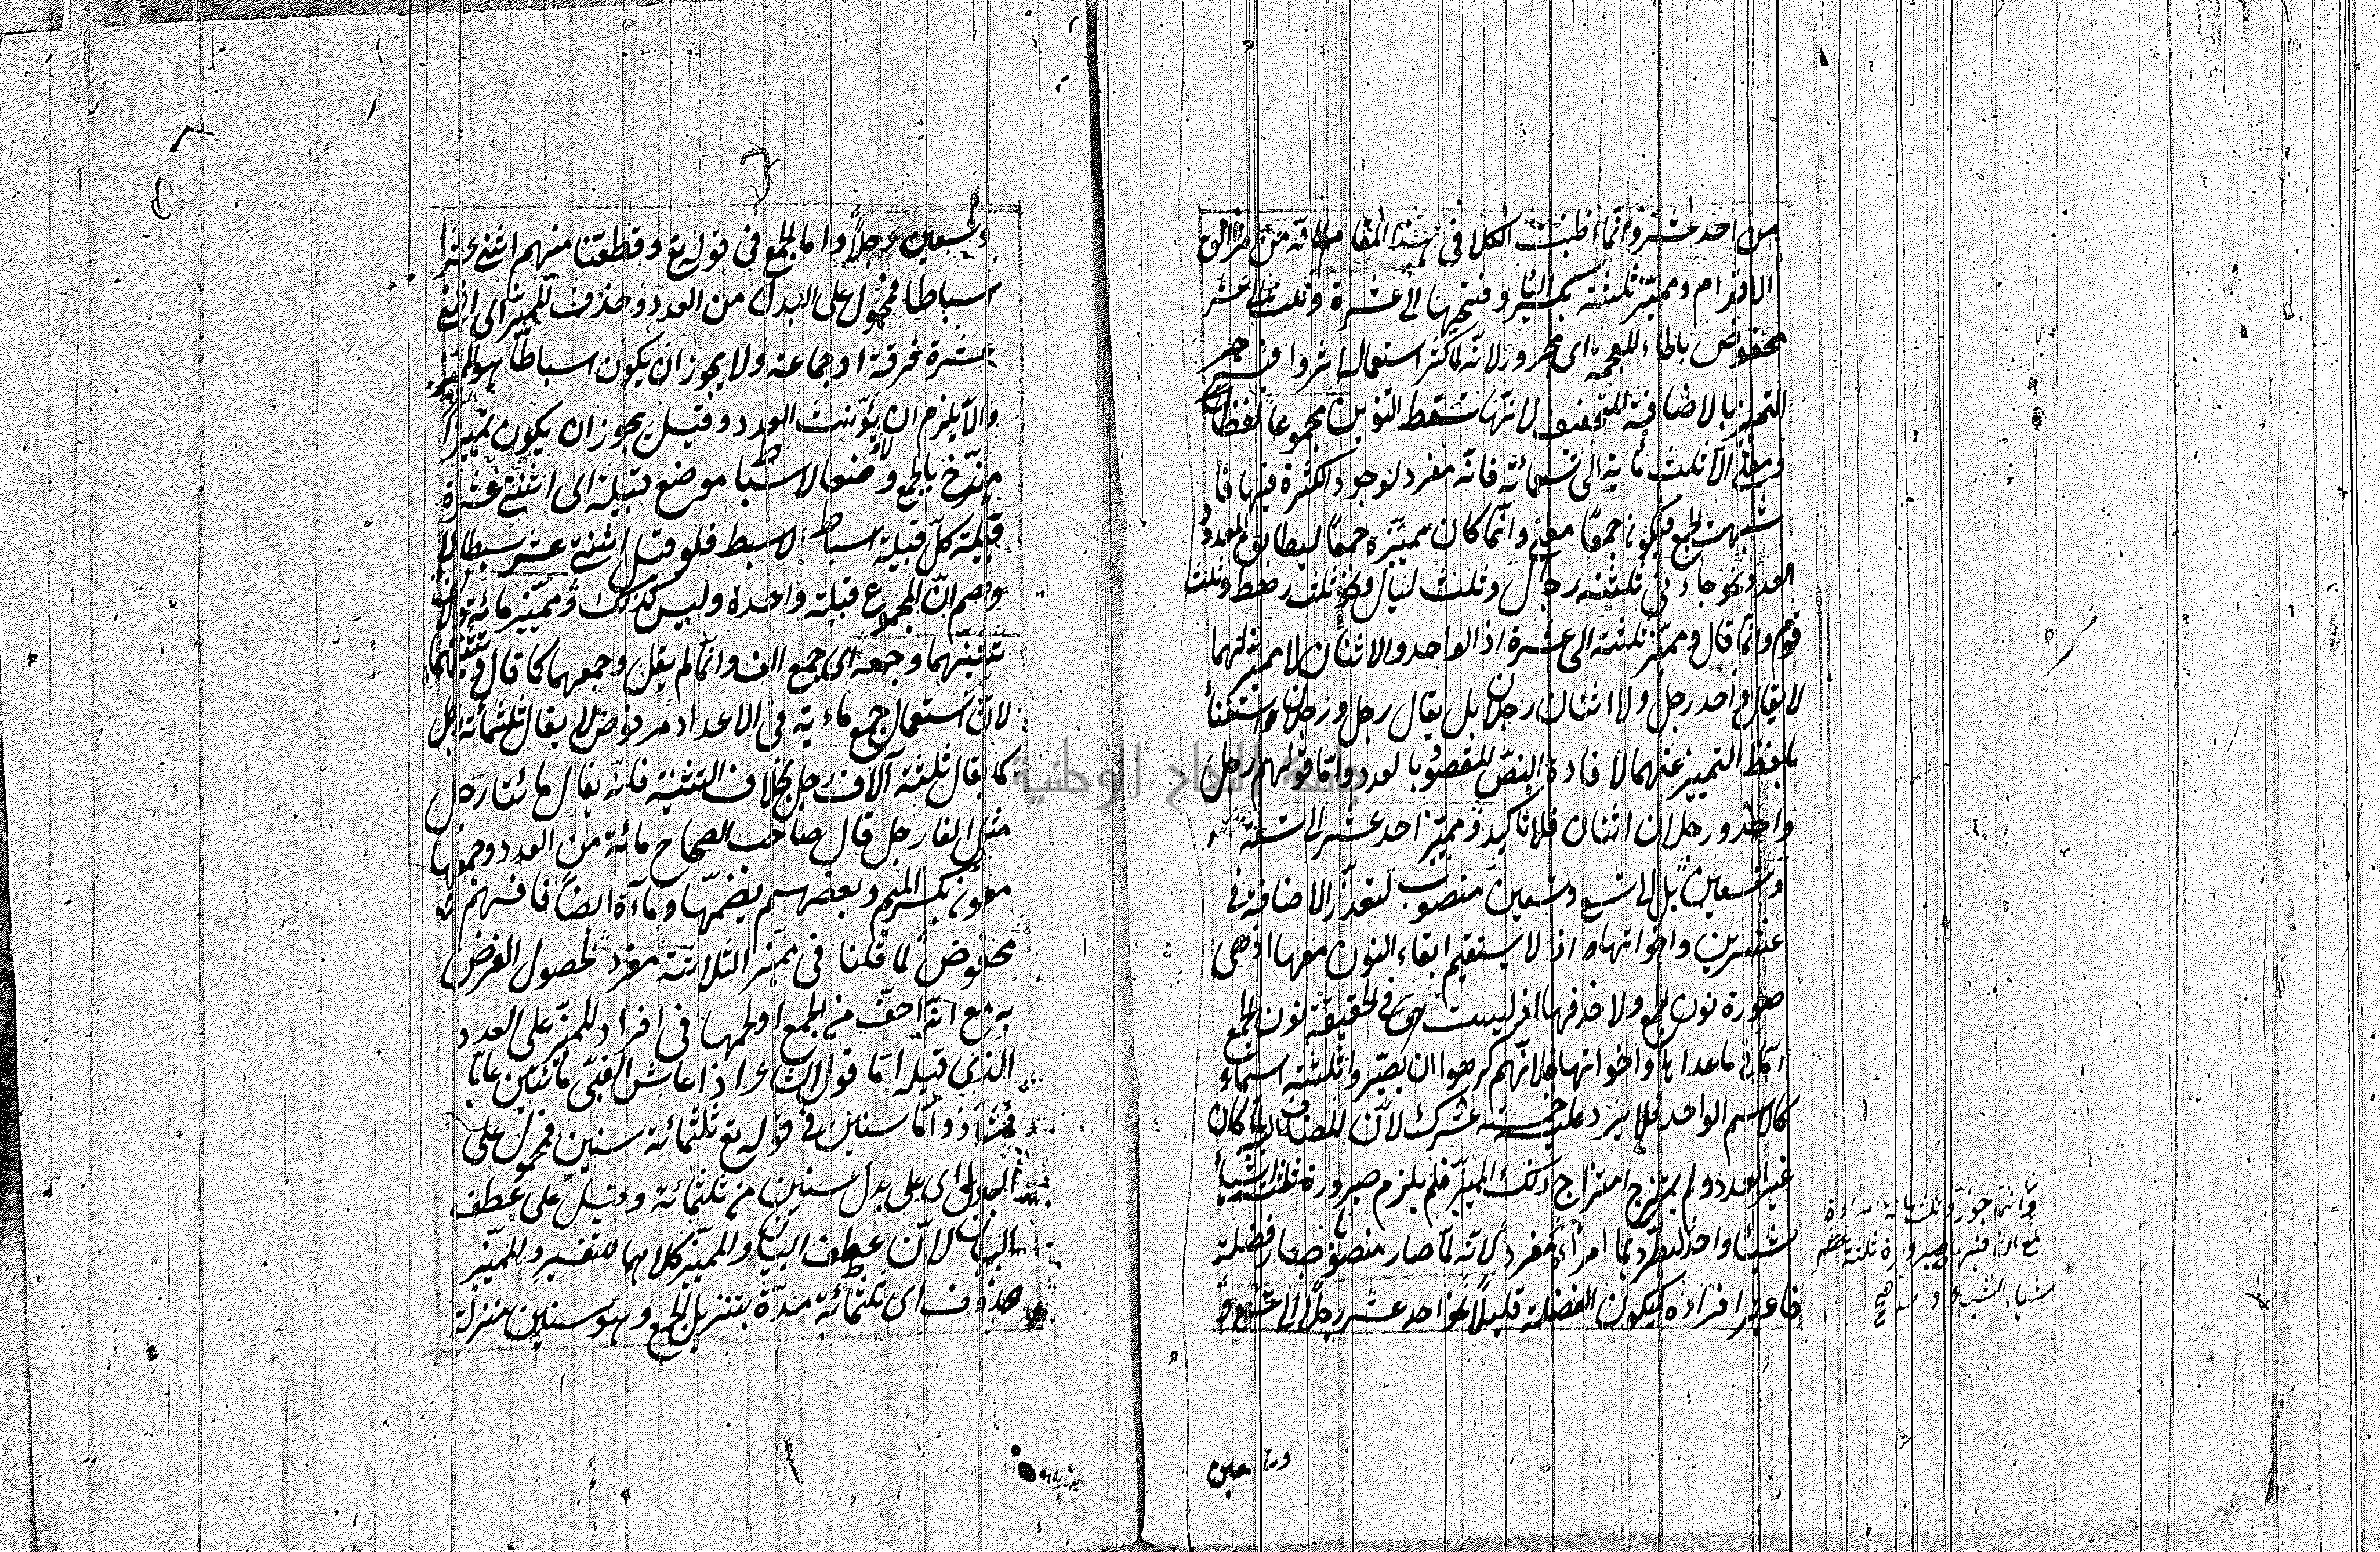 من احد عشر وانما اطنبت الكلام فى هذا المقام لانه من مزالق
الاقدام ومميز ثلثة بكسر الياء وفتحها الى عشرة وثلث الى عشر
مخفوض بالخاء المعجمة اى مجرور لانه لما كثر استعماله اثروا فيه جر
التميز بالاضافة للتخفيف لانها تسقط التنوين مجموعا لفظا
ومعنى الا ثلث مائة الى تسعمائة فانه مفرد لوجود الكثرة فيها فا
شبهت الجمع فيكون جمعا معنى وانما كان مميزه جمعا ليطابق المعدود
العدد نحو جاءنى ثلثة رجال وثلث ليال ونحو ثلث رهط وثلث
قوم وانما قال ومميز ثلثة الى عشرة اذ الواحد والاثنان لا مميز لهما
لا يقال واحد رجل ولا اثنان رجلان بل يقال رجل ورجلان واستغناء
بلفظ التمييز عنهما لافادة النص المقصود بالعدد واما قولهم رجل
واحد ورجلان اثنان فللتاكيد ومميز احد عشر الى تسعة
وتسعين بل الى تسع وتسعين منصوب لتعذر الاضافة فى
عشرين واخواتها اذ لا يستقيم ابقاء النون معها اذ هى
صورة نون الجمع ولا حذفها اذ ليست هى فى الحقيقة نون الجمع
اما فى ما عداها واخواتها فلانهم كرهوا ان يصيروا ثلثة اسماء
كالاسم الواحد فلا يرد عليه خمسة عشرك لان المضاف اليه لما كان
غير العدد ولم يمتزج امتزاج ذلك المميز فلم يلزم صيرورة ثلثة اشياء
شيئا واحدا مفرد لانه لما صار منصوبا صار فضلة
فاعتبر افراده ليكون الفضلة قليلا نحو احد عشر رجلا الى تسع و
وتسعين
وانما جوز ثلثمائة امراة
مع ان فيها صيرورة ثلثة
اشياء لشيء واحد صح
وتسعين رجلا واما الجمع فى قوله تع وقطعنا منهم اثنى عشر
اسباطا فمحمول على البدل من العدد وحذف المميز اى اثنتى
عشرة فرقة او جماعة ولا يجوز ان يكون اسباطا هو المميز
والا يلزم ان يؤنث العدد وقيل يجوز ان يكون تميزا
بالجمع وضعا لاسباط موضع قبيلة اى اثنتى عشرة
قبيلة كل قبيلة اسباط لا سبط فلو قيل اثنى عشر سبطا
وهم ان المجموع قبيلة واحدة وليس كذلك ومميز مائة والف
تثنيتهما وجمعه اى جمع الف وانما لم يقل وجمعهما كما قال وتثنيتهما
لان استعمال جمع مائة فى الاعداد مرفوض لا يقال ثلثمائة رجل
كما يقال ثلثة آلاف رجل بخلاف التثنية فانه يقال مائتا رجل
مثل الفا رجل قال صاحب الصحاح مائة من العدد وجمعها
مؤن بكسر الميم وبعضهم يضمها ومآة ايضا فافهم
مخفوض لما قلنا فى مميز الثلاثة مفرد لحصول الغرض
به مع انه اخف من الجمع اولحملها فى افراد المميز على العدد
الذى قبله اما قول الشاعر اذا عاش الفتى مائتين عاما
فشاذ واما سنين فى قوله تع ثلثمائة سنين فمحمول على
البدل اى على بدل سنين من ثلثمائة وقيل على عطف
البيان لان عطف البيان والمميز كلاهما للتفسير والمميز
محذوف اى ثلثمائة مدة بتنزيل الجمع وهو سنين منزلة